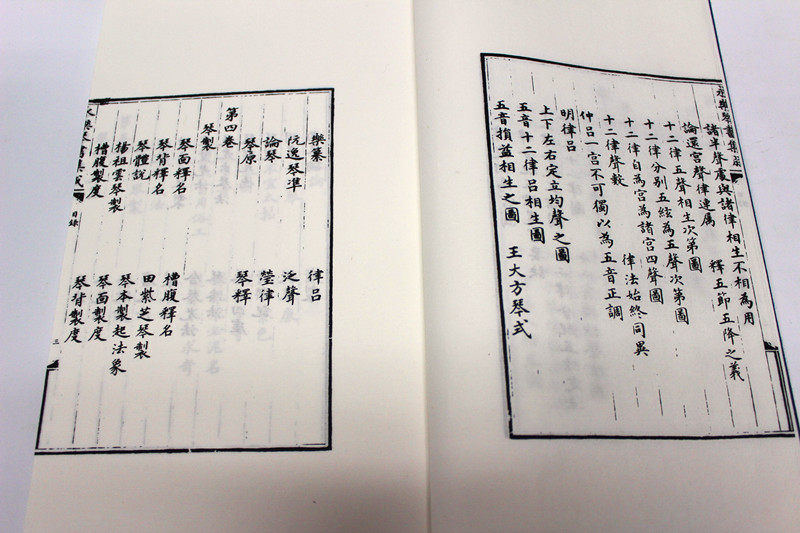 永樂琴書集成
諸半聲虛與諸律相生不相為用
論還宮聲律連屬 釋五節五降之義
十二律五聲相生次第圖
十二律分別五絃為五聲次第圖
十二律自為宮為諸宮四聲圖
十二律聲數 律法始終同異
仲呂一宮不可獨以為五音正調
明律呂
上下左右定立均聲之圖
五音十二律呂相生圖
五音損益相生之圖 王大方琴式
樂纂 律呂
阮逸琴準 泛聲
論琴 瑩律
琴原 琴釋
第四卷
琴製
琴面釋名 槽腹釋名
琴背釋名 田紫芝琴製
琴體說 琴本製起法象
楊祖雲琴製 琴面製度
槽腹製度 琴背製度
永樂琴書集成 目錄 三